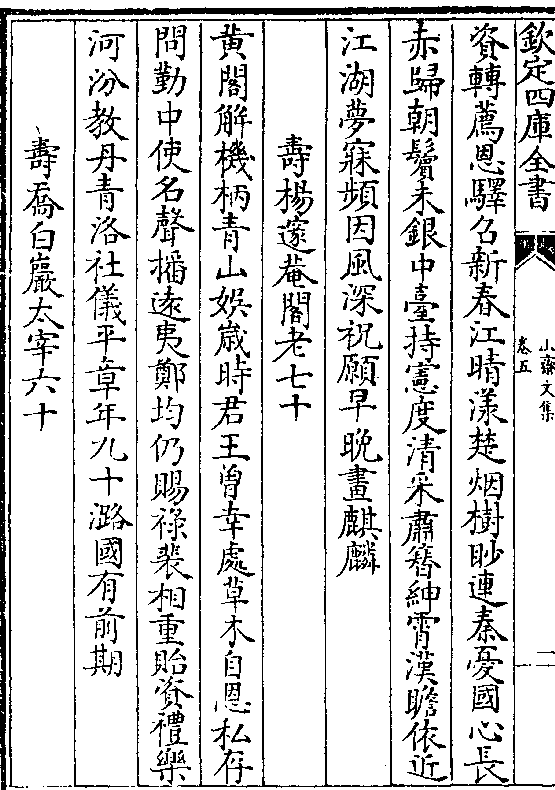 欽定四庫全書
小齋文集
卷五
二
資轉薦恩驛召新春江晴漾楚烟樹眇連秦憂國心長
赤歸朝鬢未銀中臺持憲度清采肅簪紳霄漢瞻依近
江湖夢寐頻因風深祝願早晚畫麒麟
壽楊邃菴閣老七十
黄閣解機柄青山娯歲時君王曾幸處草木自恩私存
問勤中使名聲播遠夷鄭均仍賜祿裴相重貽資禮樂
河汾教丹青洛社儀平章年九十潞國有前期
壽喬白巖太宰六十